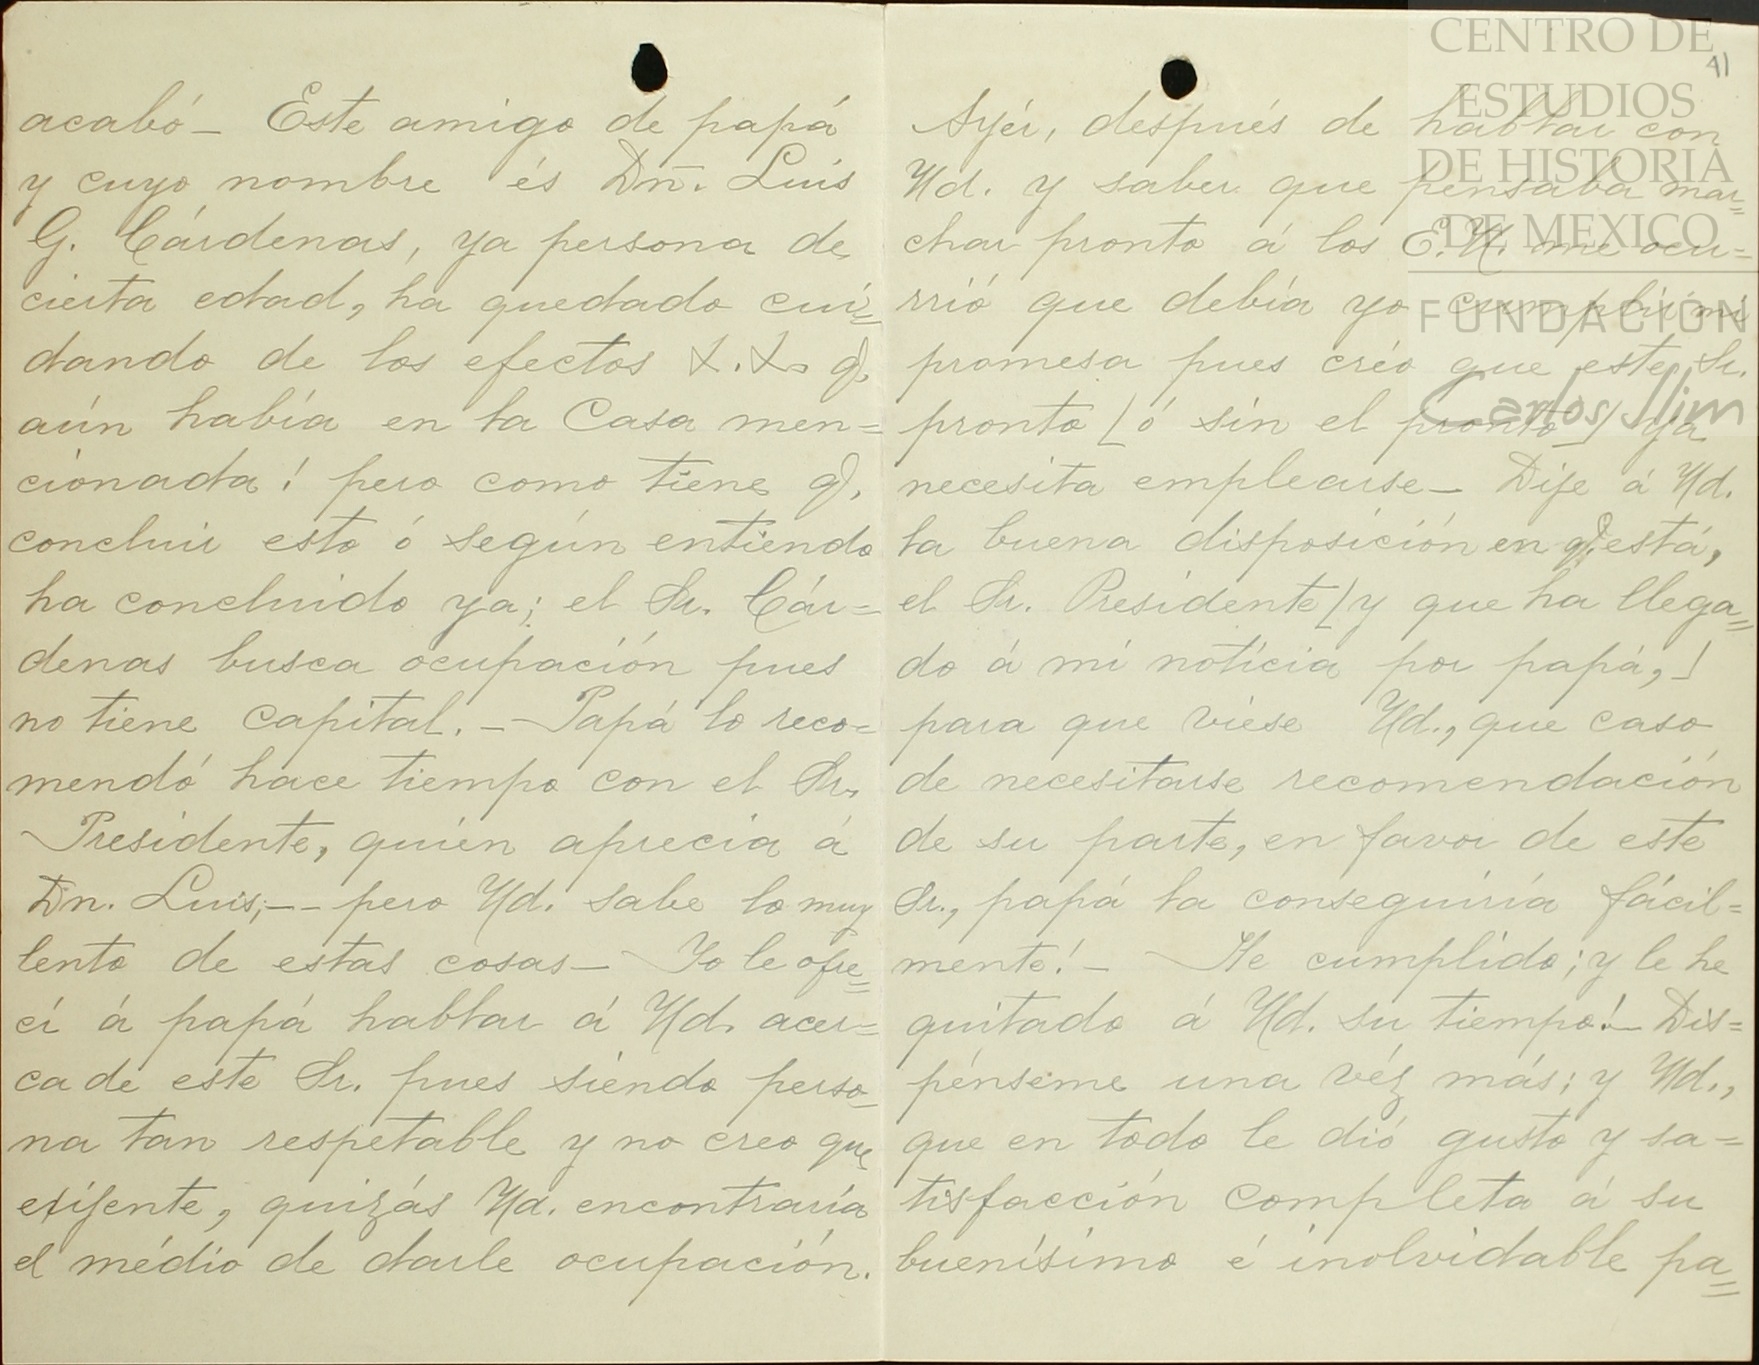 acabó— Este amigo de papá
y cuyo nombre és Dn. Luis
G. Cárdenas, ya persona de
cierta edad, ha quedado cui=
dando de los efectos &.&. q.
aún había en la Casa men=
cionada! pero como tiene q.
concluir esto ó según entiendo
ha concluido ya; el Sr. Cár=
denas busca ocupación pues
no tiene capital.— Papá lo reco=
mendó hace tiempo con el Sr.
Presidente, quién aprecia á
Dn. Luis;—— pero Ud. sabe lo muy
lento de estas cosas— Yo le ofre=
cí á papá hablar á Ud. acer=
ca de este Sr. pues siéndo perso=
na tan respetable y no creo que
exijente, quizás Ud. encontraría
el médio de darle ocupación.
41
Ayér, después de hablar con
Ud. y saber que pensaba mar=
char pronto á los E.U. me ocu=
rrió que debía yo cumplir mi
promesa pues créo que este Sr.
pronto [ó sin el pronto] ya
necesita emplearse— Dije á Ud.
la buena disposición en q. está,
el Sr. Presidente [y que ha llega=
do á mi notícia por papá,]
para que viése Ud., que caso
de necesitarse recomendación
de su parte, en favor de este
Sr., papá la conseguiría fácil=
mente!— He cumplido; y le he
quitado á Ud. su tiempo!— Dis=
pénseme una véz más; y Ud.,
que en todo le dió gusto y sa=
tisfacción completa á su
buenísimo é inolvidable pa=
CENTRO DE
ESTUDIOS
DE HISTORIA
DE MEXICO
FUNDACIÓN
Carlos Slim